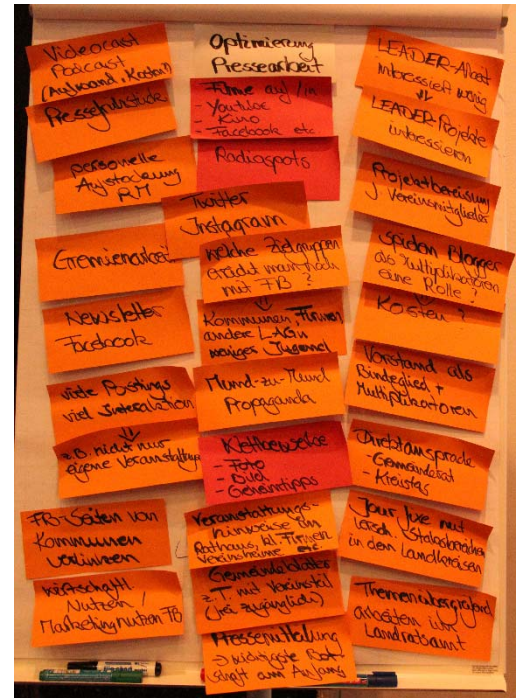 Optimierung
Pressearbeit
Videocast
Podcast
(Aufwand, Kosten?)
Pressefrühstück
personelle
Aufstockung
RM
Gremienarbeit
Newsletter
Facebook
viele Postings
viel Interaktion
z.B. nicht nur
eigene Veranstaltung
FB-Seiten von
Kommunen
verlinken
wirtschaftl.
Nutzen /
Marketingnutzen FB
Filme auf/in
- Youtube
- Kino
- Facebook etc
Radiospots
Twitter
Instagram
welche Zielgruppen
erreicht man noch
mit FB?
Kommunen, Firmen
andere LAGn
weniger Jugend
Mund-zu-Mund
Propaganda
Wettbewerbe
- Foto
- Bild
- Geheimtipps
Veranstaltungs-
hinweise im
Rathaus, kl. Firmen
Vereinsheime etc
Gemeindeblätter
z.T. mit Vereinsteil
(frei zugänglich)
Pressemitteilung
→ wichtigste Bot-
schaft am Anfang
LEADER-Arbeit
interessiert wenig
LEADER-Projekte
interessieren
Projektbereisung
f. Vereinsmitglieder
spielen Blogger
als Multiplikatoren
eine Rolle?
Kosten?
Vorstand als
Bindeglied +
Multiplikatoren
Direktansprache
- Gemeinderat
- Kreistag
Jour fixe mit
in den Landkreisen
Themenübergreifend
arbeiten
Landratsamt